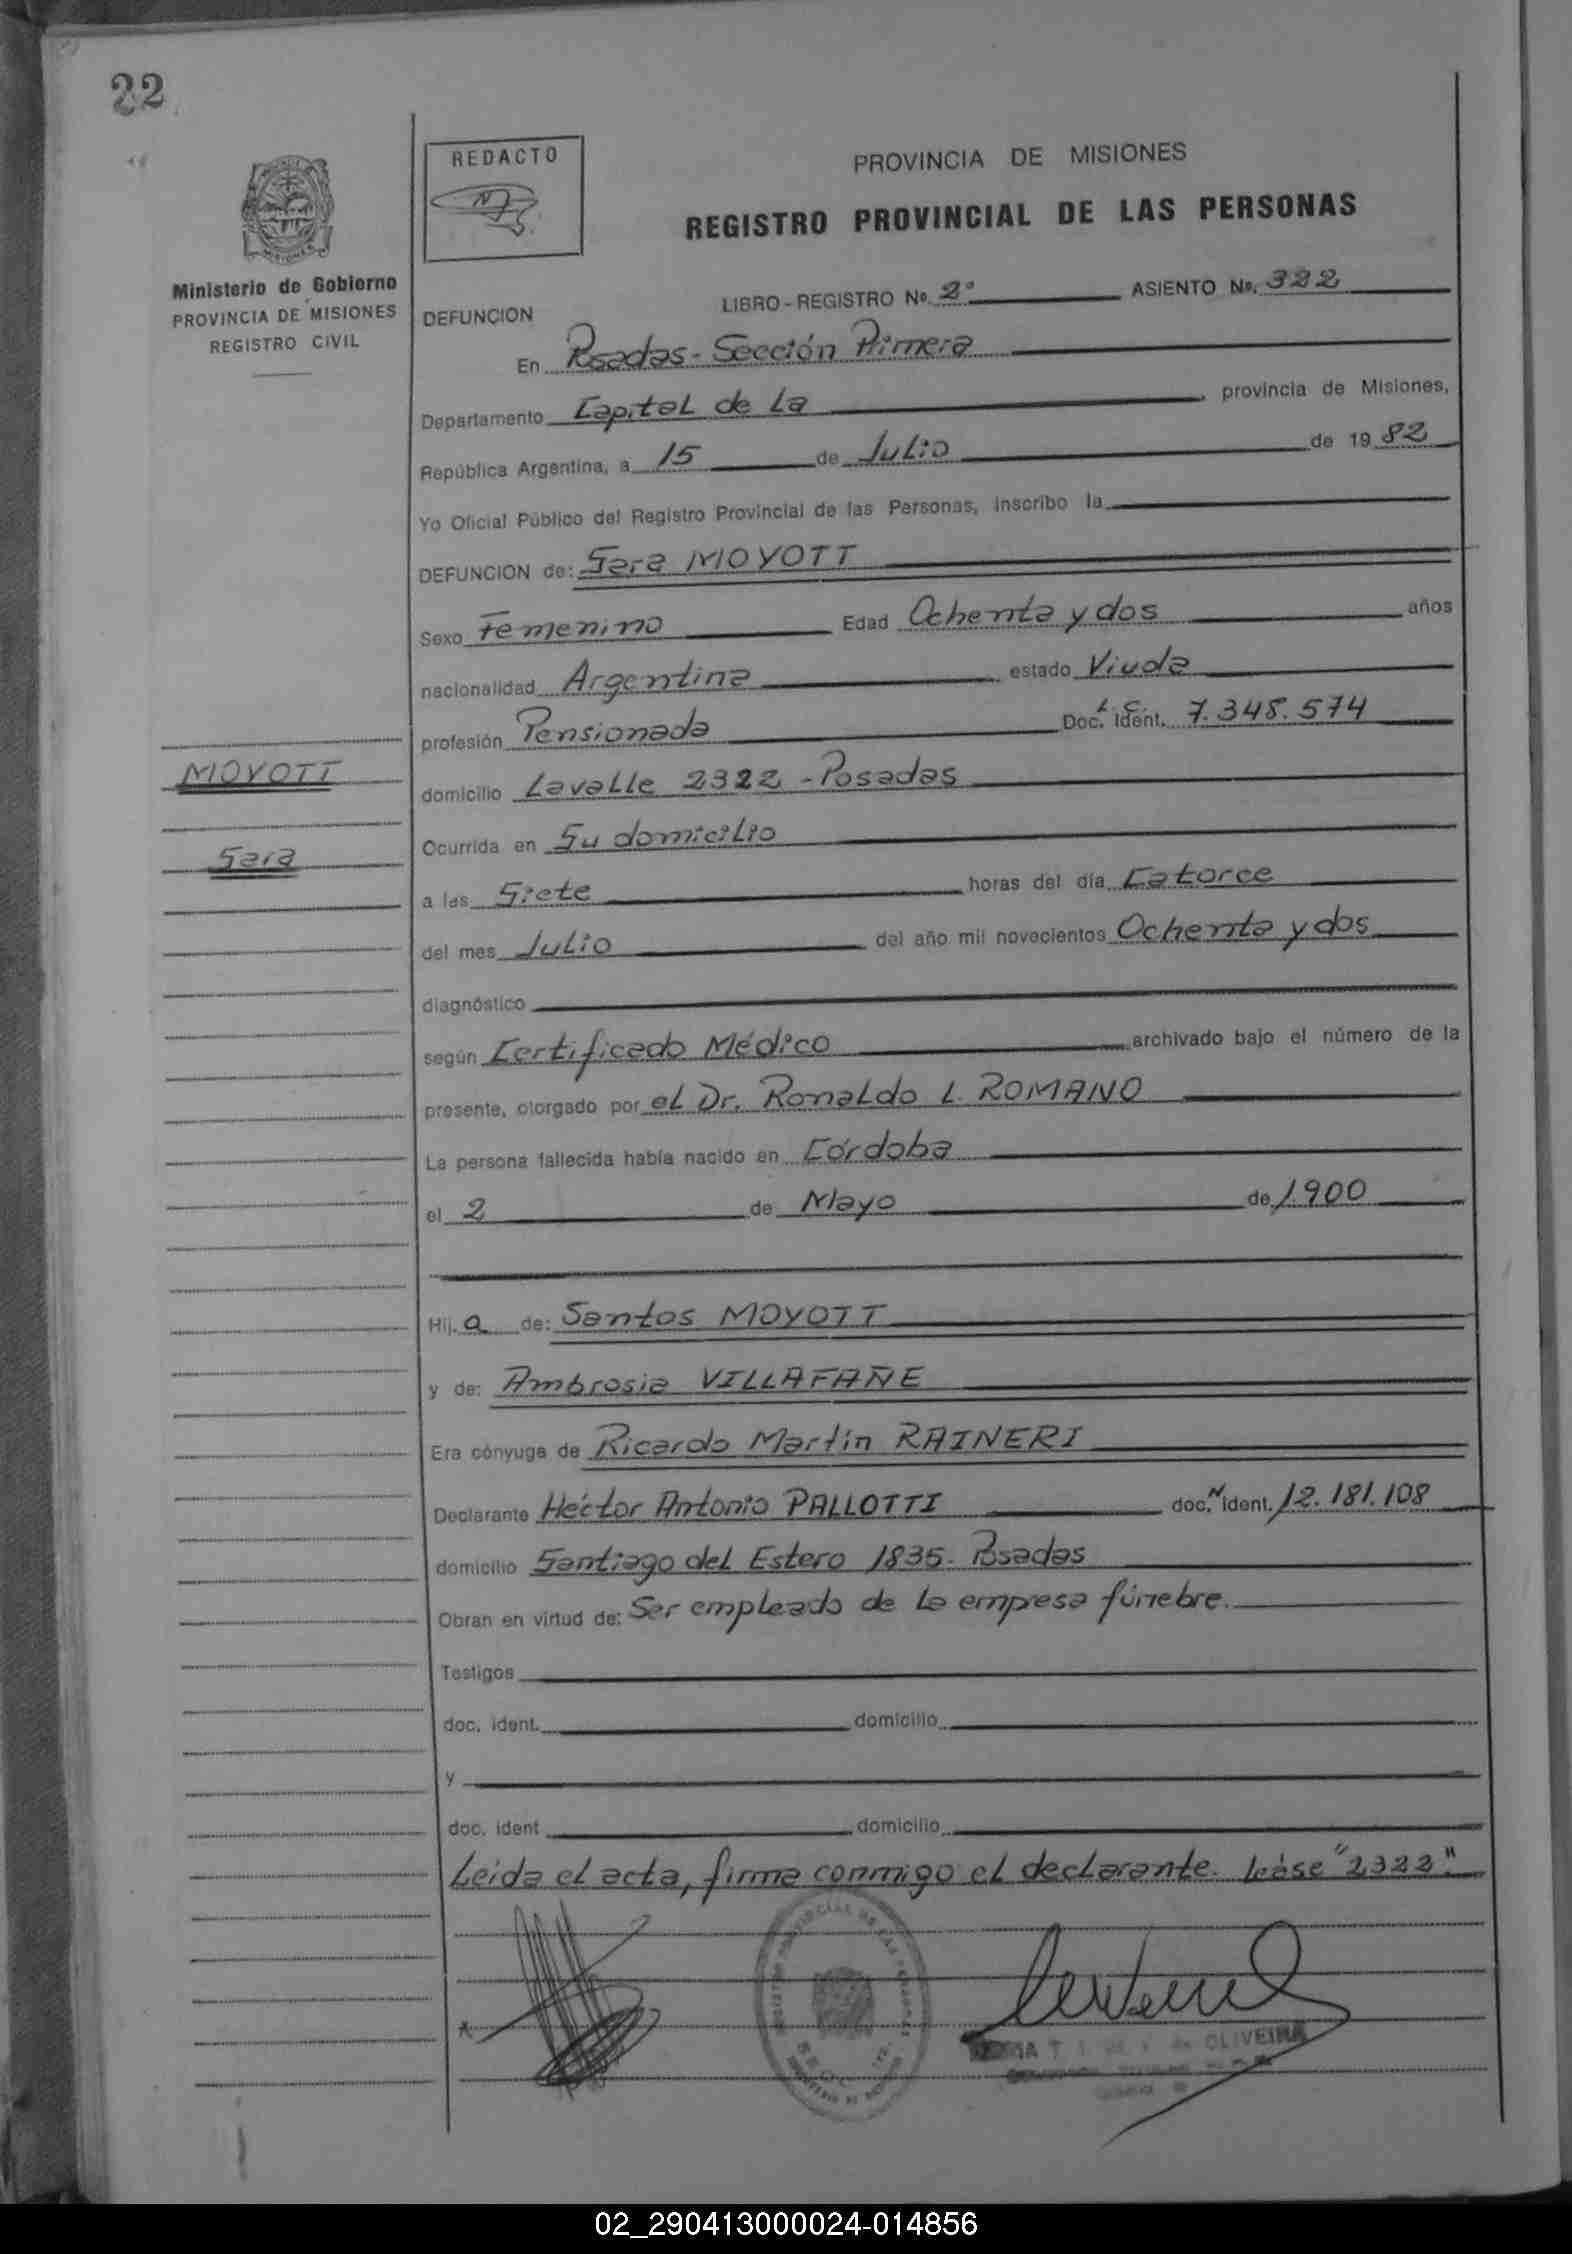 22
REDACTO
PROVINCIA DE MISIONES
REGISTRO PROVINCIAL DE LAS PERSONAS
MISIONES
Ministerio de Gobierno
PROVINCIA DE MISIONES
REGISTRO CIVIL
DEFUNCION LIBRO-REGISTRO No. 2° ASIENTO No. 322
En Posadas - Sección Primera
Departamento Capital de La , provincia de Misiones,
República Argentina, a 15 de Julio de 1982
Yo Oficial Público del Registro Provincial de las Personas, inscribo la
DEFUNCION de: Sara MOYOTT
Sexo Femenino Edad Ochenta y dos años
nacionalidad Argentina estado Viuda
profesión Pensionada Doc. Ident. L.C. 7.348.574
MOYOTT
domicilio Lavalle 2322 - Posadas
Ocurrida en Su domicilio
Sara
a las Siete horas del día Catorce
del mes Julio del año mil novecientos Ochenta y dos
diagnóstico
según Certificado Médico archivado bajo el número de la
presente, otorgado por el Dr. Ronaldo L. ROMANO
La persona fallecida había nacido en Córdoba
el 2 de Mayo de 1.900
Hij a de: Santos MOYOTT
y de: Ambrosia VILLAFAÑE
Era cónyuge de Ricardo Martín RAINERI
Declarante Héctor Antonio PALLOTTI doc. N ident. 12.181.108
domicilio Santiago del Estero 1835. Posadas
Obran en virtud de: Ser empleado de la empresa fúnebre.
Testigos
doc. ident. domicilio
y
doc. ident domicilio
Leida el acta, firma conmigo el declarante. Leáse "2322".
de OLIVEIRA
02_290413000024-014856